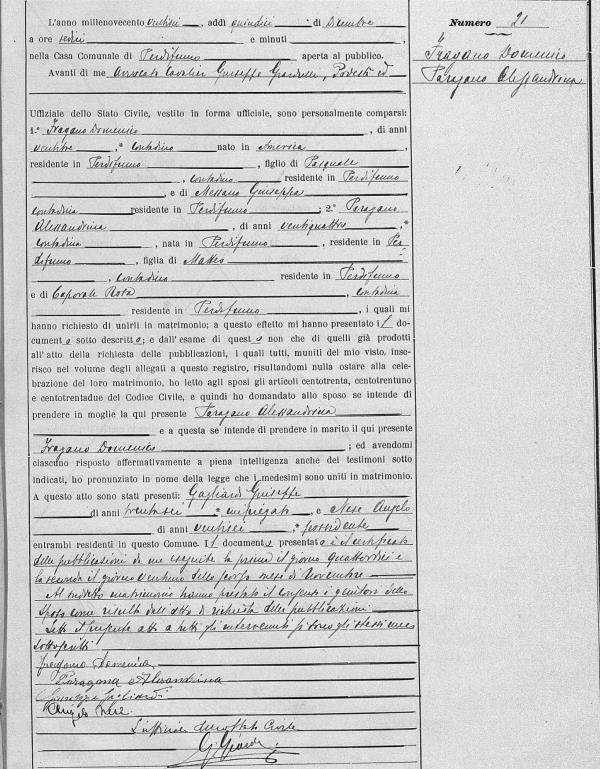 L'anno millenovecento ventisei, addì quindici di Dicembre
a ore sedici e minuti,
nella Casa Comunale di Perdifumo aperta al pubblico.
Avanti di me Avvocato Cavalier Giuseppe Giardelli, Podestà ed
Uffiziale dello Stato Civile, vestito in forma ufficiale, sono personalmente comparsi:
1.° Fragano Domenico, di anni
ventitre, * contadino nato in America,
residente in Perdifumo, figlio di Pasquale
, contadino residente in Perdifumo
, e di Messano Giuseppa
contadina residente in Perdifumo; 2.° Paragano
Alessandrina, di anni ventiquattro, *
contadina, nata in Perdifumo, residente in Per
difumo, figlia di Matteo
, contadino residente in Perdifumo
e di Caporale Rosa, contadina
residente in Perdifumo, i quali mi
hanno richiesto di unirli in matrimonio; a questo effetto mi hanno presentato il docu-
mento sotto descritto; e dall'esame di questo non che di quelli già prodotti
all'atto della richiesta delle pubblicazioni, i quali tutti, muniti del mio visto, inse-
risco nel volume degli allegati a questo registro, risultandomi nulla ostare alla cele-
brazione del loro matrimonio, ho letto agli sposi gli articoli centotrenta, centotrentuno
e centotrentadue del Codice Civile, e quindi ho domandato allo sposo se intende di
prendere in moglie la qui presente Paragano Alessandrina
e a questa se intende di prendere in marito il qui presente
Fragano Domenico; ed avendomi
ciascuno risposto affermativamente a piena intelligenza anche dei testimoni sotto
indicati, ho pronunziato in nome della legge che i medesimi sono uniti in matrimonio.
A questo atto sono stati presenti: Gagliardi Giuseppe
di anni trentasei * impiegato, e Nese Angelo
di anni ventisei, * possidente
entrambi residenti in questo Comune. Il documento presentato è il certificato
delle pubblicazioni da me eseguite la prima il giorno quattordici e
la seconda il giorno ventuno dello scorso mese di Novembre
Al suddetto matrimonio hanno prestato il consenso i genitori dello
sposo come risulta dall'atto di richiesta delle pubblicazioni.
Letto il presente atto a tutti gli intervenuti si sono gli stessi meco
sottoscritti
Fragano Domenico
Paragano Alesandrina
Giuseppe Gagliardi
Angelo Nese
L'ufficiale dello Stato Civile
Numero 21
Fragano Domenico
Paragano Alessandrina